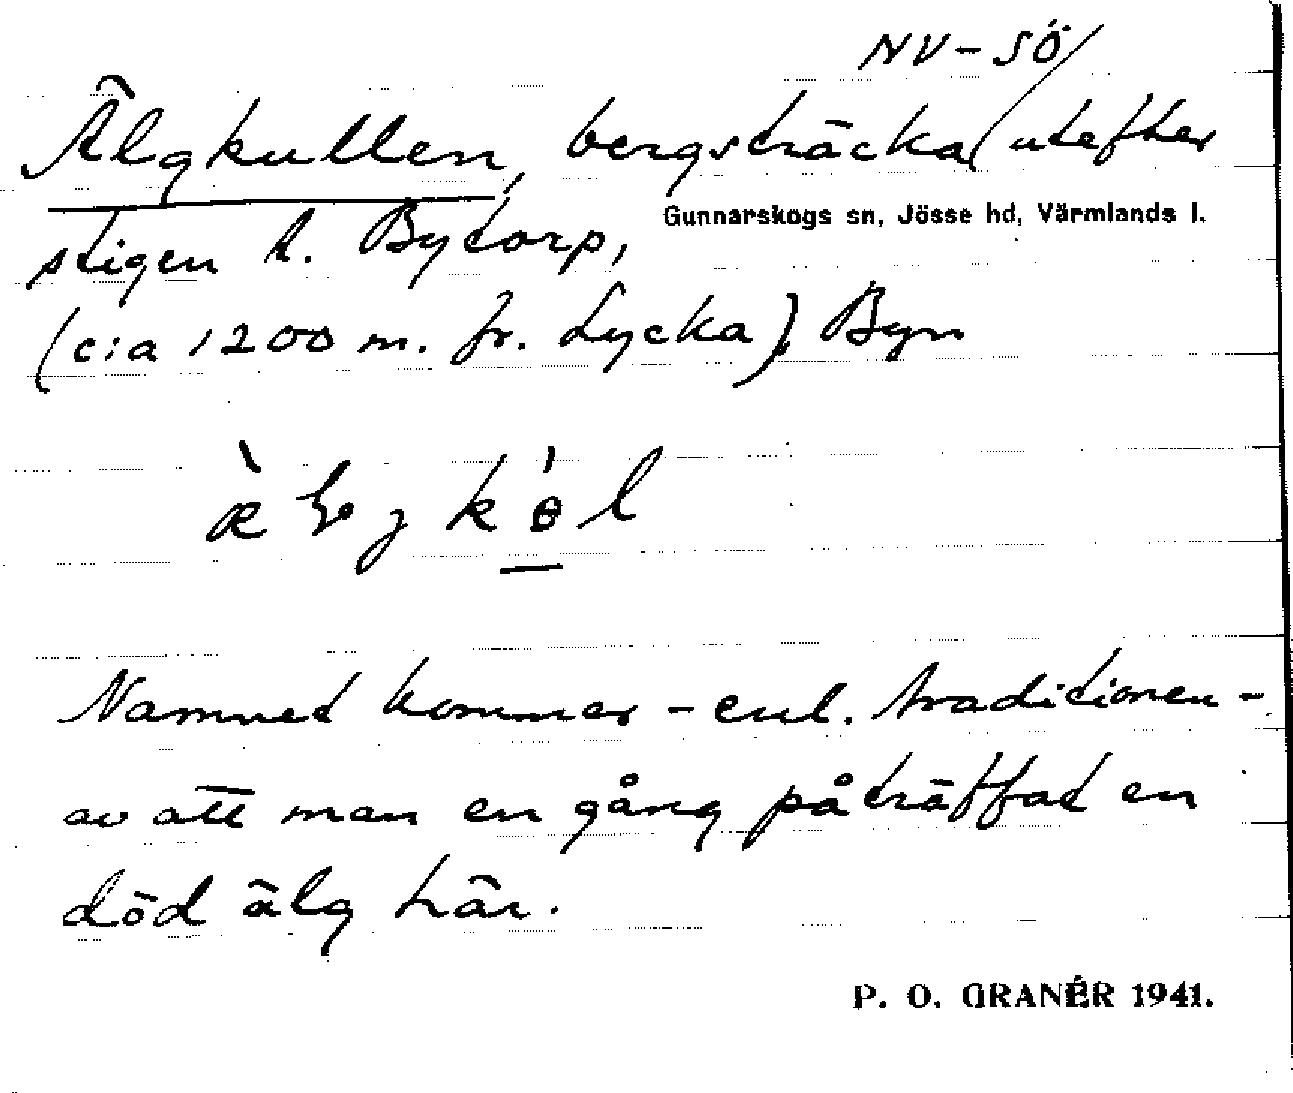 NV-SÖ
Älgkullen, bergsträcka utefter
Gunnarskogs sn, Jösse hd, Värmlands l.
stigen t. Bytorp,
(c:a 1200 m. fr. Lycka), Byn
Namnet kommer - enl. traditionen -
av att man en gång påträffat en
död älg här.
P. O. GRANÉR 1941.